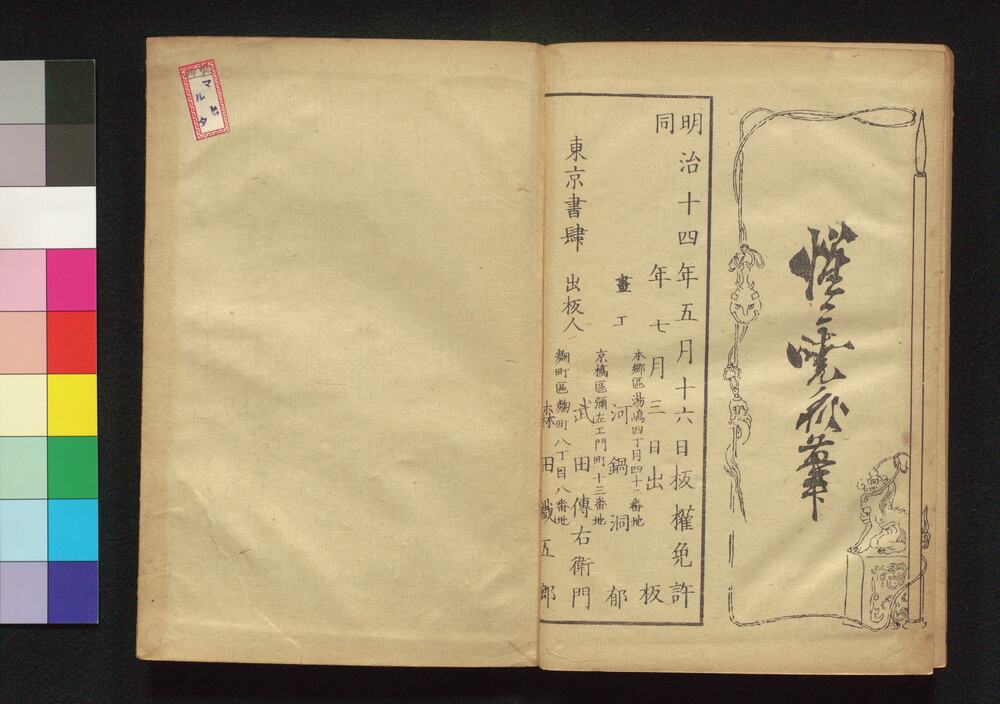 惺々暁斎筆
明治十四年五月十六日板權免許
同年七月三日出板
本郷區湯嶋四丁目四十二番地
畫工 河鍋洞郁
京橋區彌左エ門町十三番地
東京書肆 出板人 武田傳右衛門
麹町區麹町八丁目八番地
森田鐵五郎
マルト